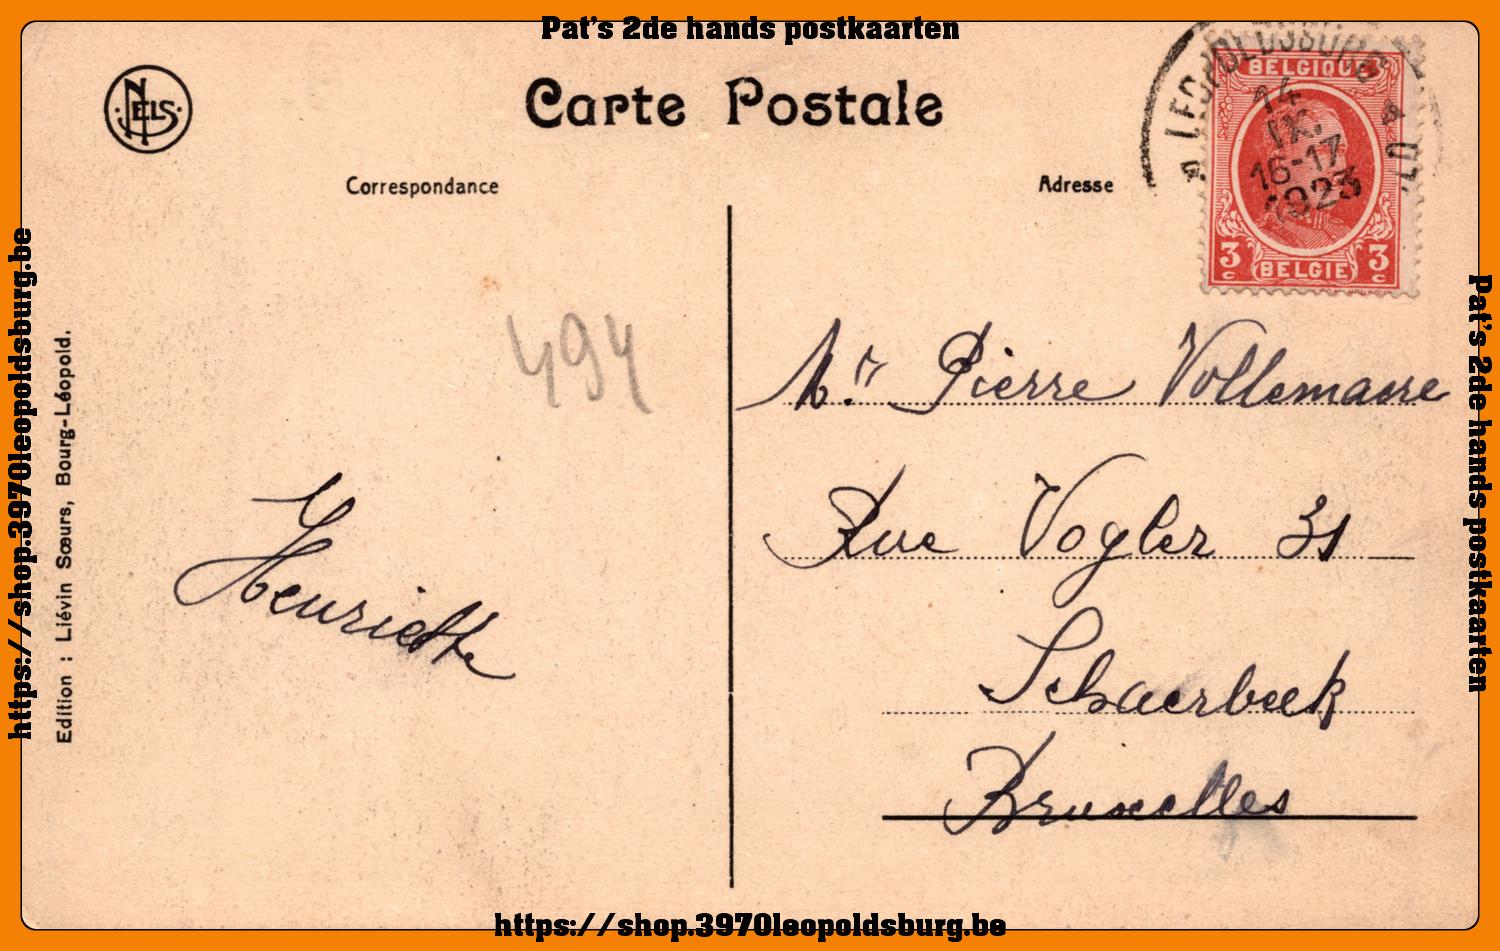 Pat's 2de hands postkaarten
NELS
Carte Postale
Correspondance
Adresse
LEOPOLDSBURG
14
IX.
16-17
1923
BELGIQUE
3 c BELGIE 3 c
494
Mr. Pierre Vollemaere
Rue Vogler 31
Schaerbeek
Bruxelles
Henriette
Edition : Liévin Sœurs, Bourg-Léopold.
https://shop.3970leopoldsburg.be
Pat's 2de hands postkaarten
https://shop.3970leopoldsburg.be